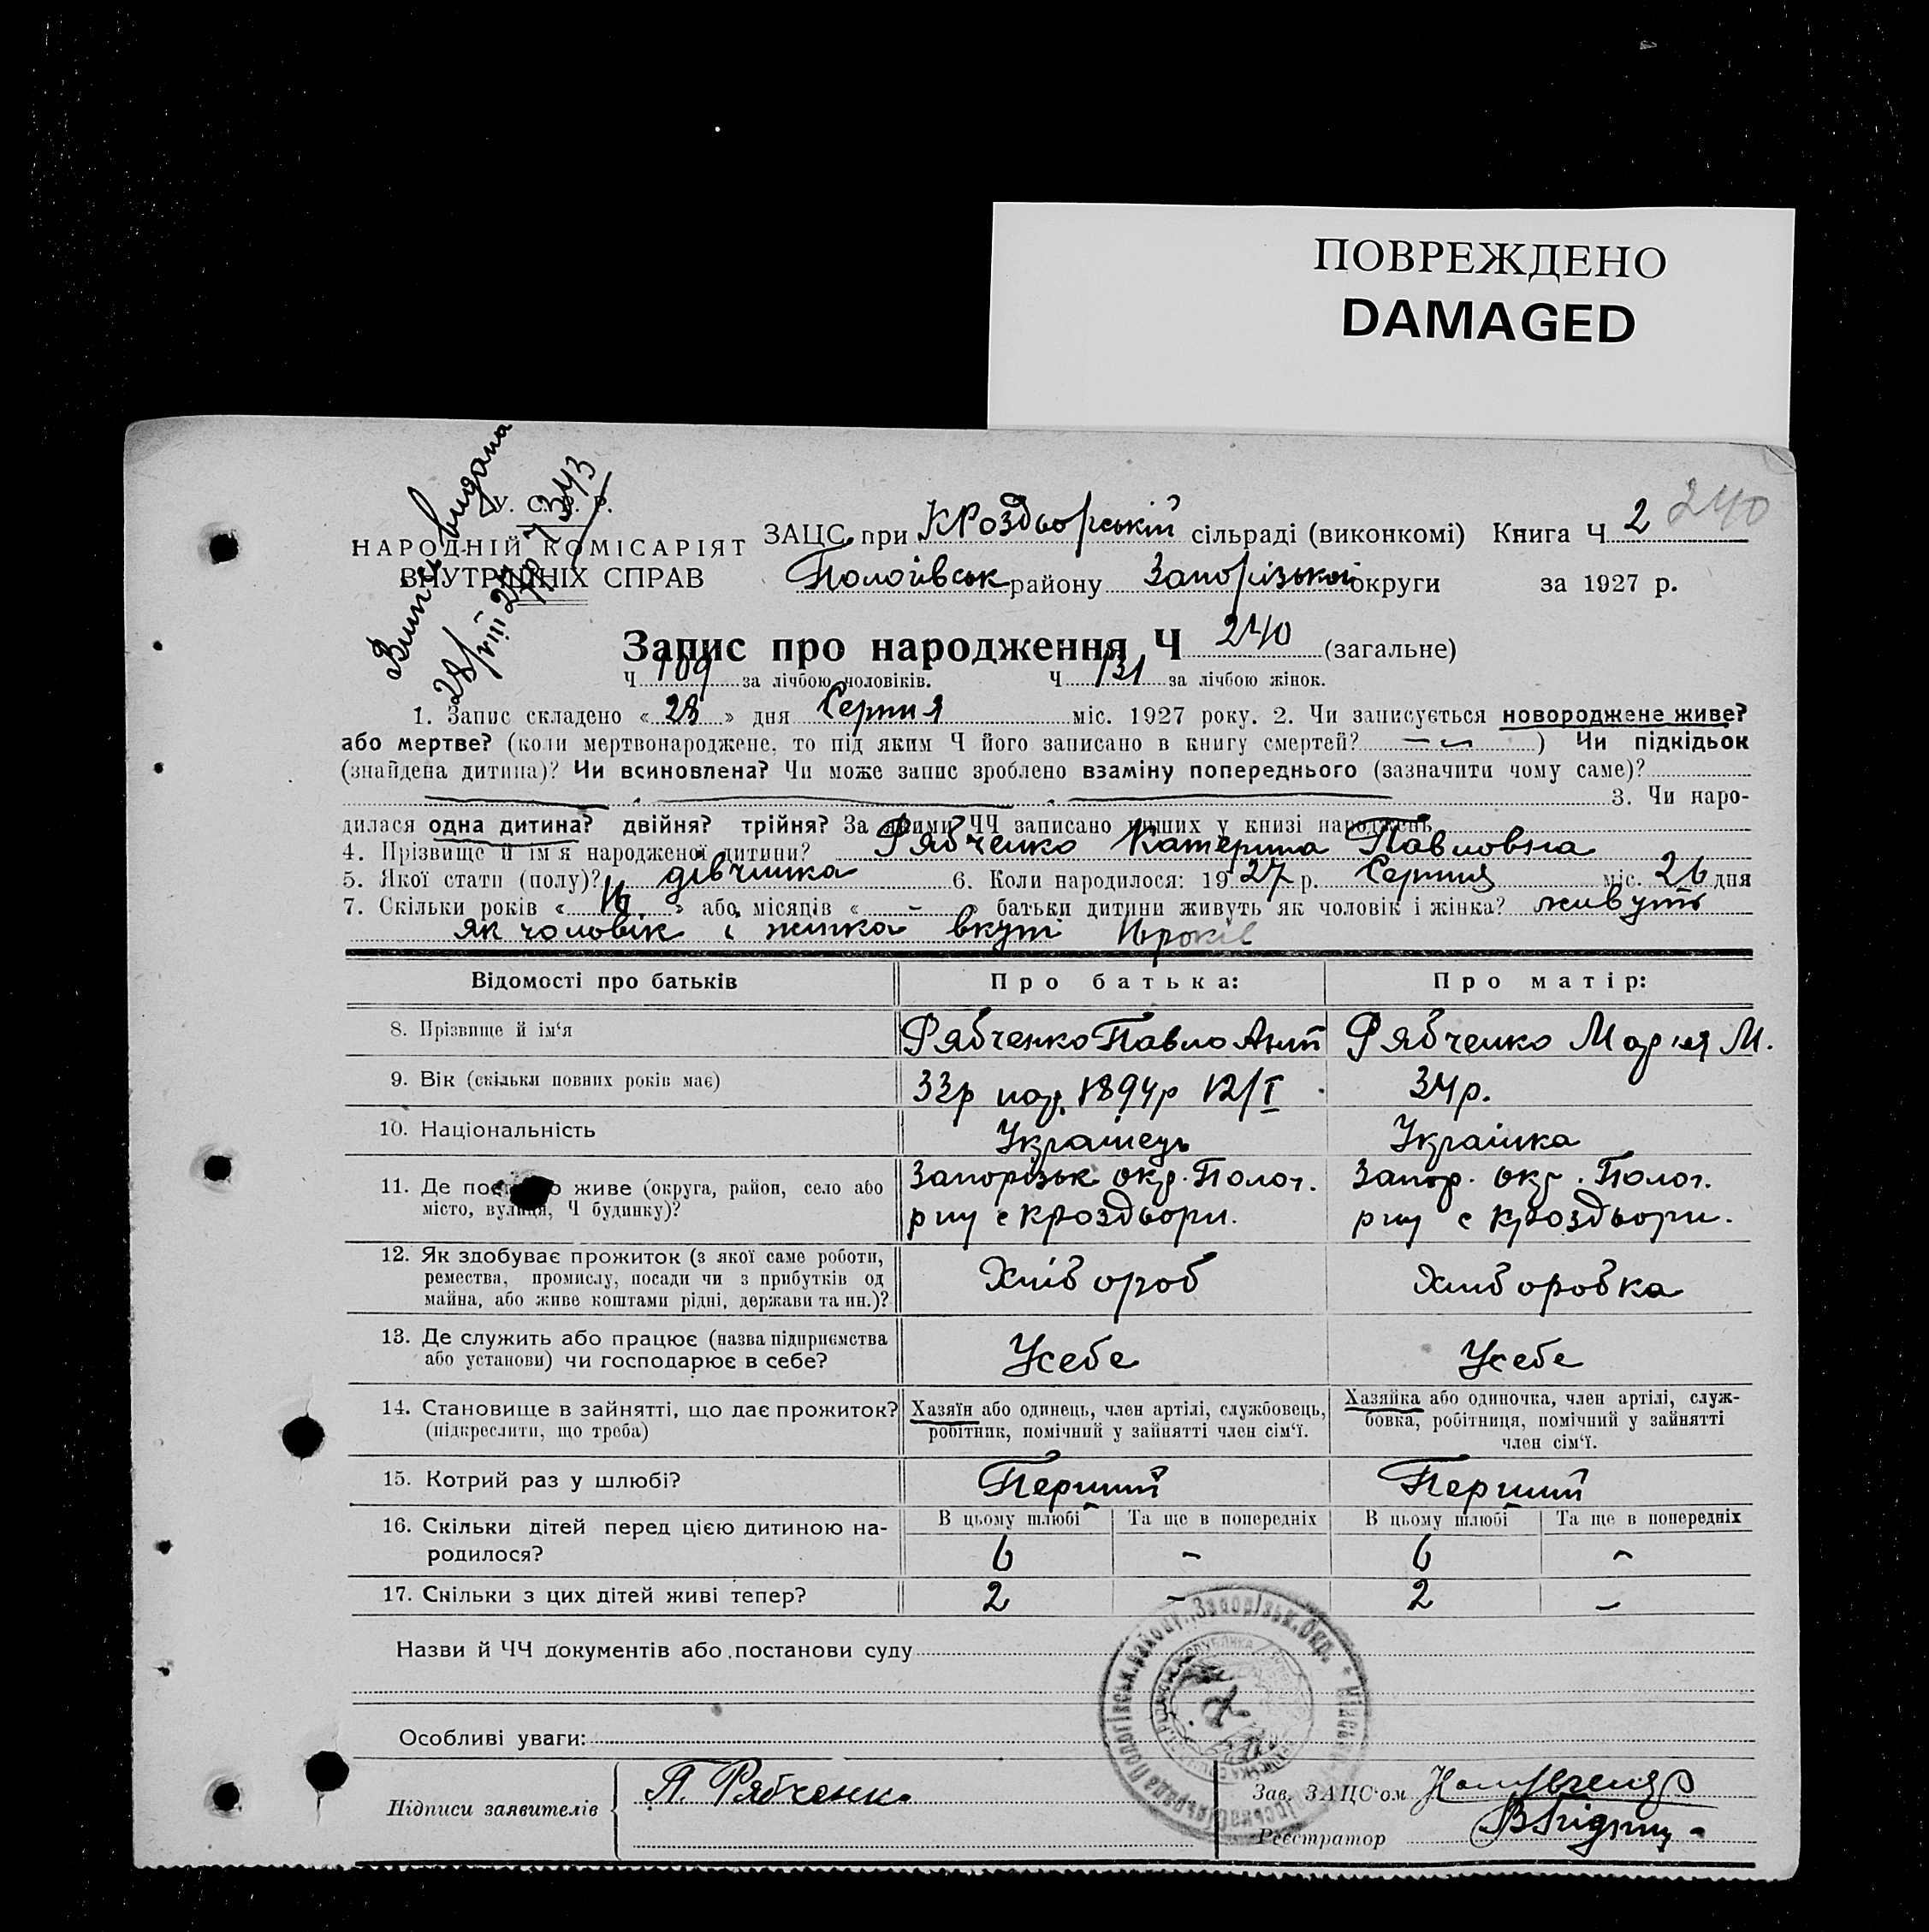 ПОВРЕЖДЕНО
DAMAGED
Витяг видана
28/VIII 27 р
240
У. С. Р. Р.
НАРОДНІЙ КОМІСАРІЯТ
ВНУТРІШНІХ СПРАВ
ЗАЦС при КРоздорській сільраді (виконкомі) Книга Ч 2
Пологівськ району Запорізької округи за 1927 р.
Запис про народження Ч 240 (загальне)
Ч 109 за лічбою чоловіків. Ч 131 за лічбою жінок.
1. Запис складено « 28 » дня Серпня міс. 1927 року. 2. Чи записується новороджене живе?
або мертве? (коли мертвонароджене, то під яким Ч його записано в книгу смертей? — ) Чи підкідьок
(знайдена дитина)? Чи всиновлена? Чи може запис зроблено взаміну попереднього (зазначити чому саме)?
3. Чи наро-
дилася одна дитина? двійня? трійня? За якими ЧЧ записано инших у книзі народжень
4. Прізвище й ім'я народженої дитини? Рябченко Катерина Павловна
5. Якої стати (полу)? дівчинка 6. Коли народилося: 1927 р. Серпня міс. 26 дня
7. Скільки років « 16 » або місяців « - » батьки дитини живуть як чоловік і жінка? живуть
як чоловік і жінка вкупі 16 років
Відомості про батьків Про батька: Про матір:
8. Прізвище й ім'я Рябченко Павло Ант Рябченко Марія М.
9. Вік (скільки повних років має) 33р нар. 1894р 12/I 34р.
10. Національність Українець Українка
11. Де постійно живе (округа, район, село або місто, вулиця, Ч будинку)? Запорізьк окр. Полог. рну с Кроздьори. Запор. окр. Полог. рну с Кроздьори.
12. Як здобуває прожиток (з якої саме роботи, ремества, промислу, посади чи з прибутків од майна, або живе коштами рідні, держави та ин.)? Хлібороб Хліборобка
13. Де служить або працює (назва підприємства або установи) чи господарює в себе? Усебе Усебе
14. Становище в зайнятті, що дає прожиток? (підкреслити, що треба) Хазяїн або одинець, член артілі, службовець, робітник, помічний у зайнятті член сім'ї. Хазяйка або одиночка, член артілі, служ-бовка, робітниця, помічний у зайнятті член сім'ї.
15. Котрий раз у шлюбі? Перший Перший
В цьому шлюбі Та ще в попередніх В цьому шлюбі Та ще в попередніх
16. Скільки дітей перед цією дитиною на-родилося? 6 - 6 -
17. Скільки з цих дітей живі тепер? 2 - 2 -
Назви й ЧЧ документів або постанови суду
Особливі уваги:
Підписи заявителів П. Рябченко
Зав. ЗАЦС'ом
Реєстратор